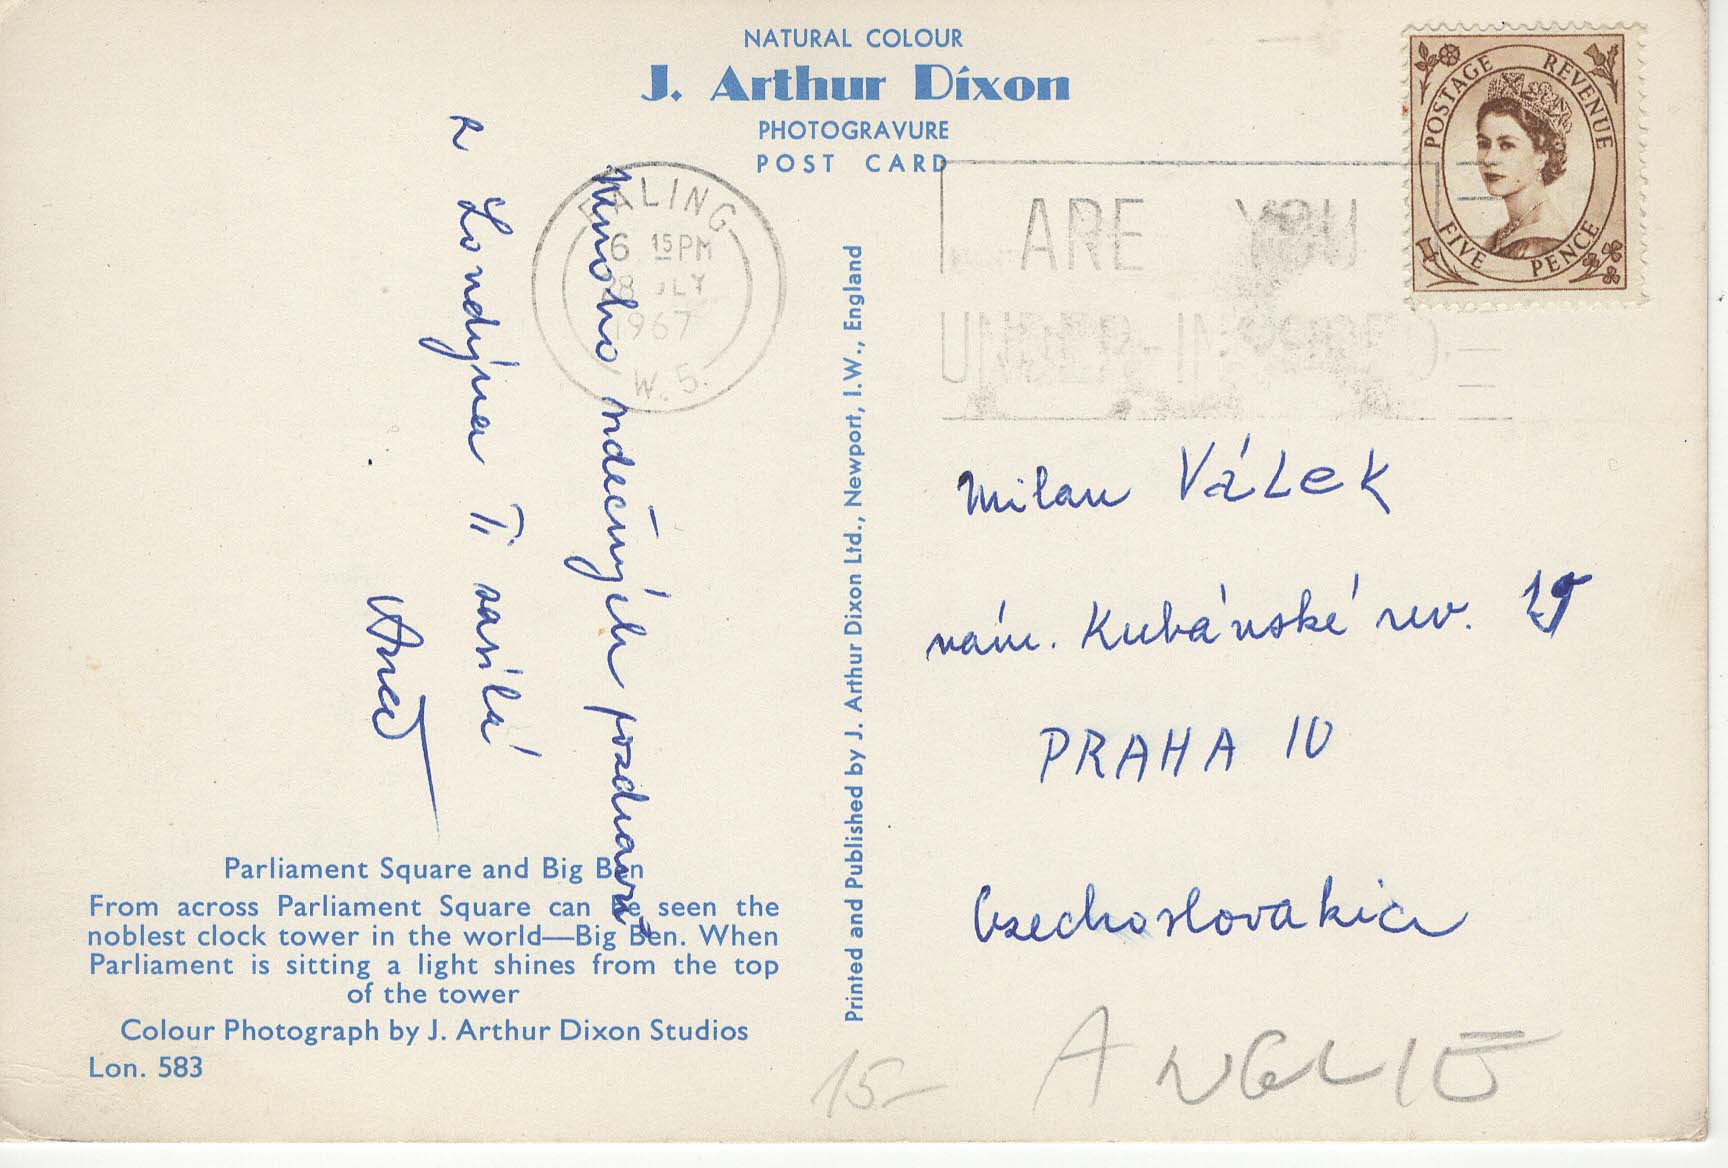 NATURAL COLOUR
J. Arthur Dixon
PHOTOGRAVURE
POST CARD
POSTAGE REVENUE
FIVE PENCE
EALING
6 15 PM
28 JLY
1967
W. 5.
ARE YOU
UNDER-INSURED
Mnoho srdečných pozdravů
z Londýna Ti zasílá
Milan VÁLEK
nám. Kubánské rev.
PRAHA 10
Czechoslovakia
Printed and Published by J. Arthur Dixon Ltd., Newport, I.W., England
Parliament Square and Big Ben
From across Parliament Square can be seen the
noblest clock tower in the world—Big Ben. When
Parliament is sitting a light shines from the top
of the tower
Colour Photograph by J. Arthur Dixon Studios
Lon. 583
15-
ANGLIE